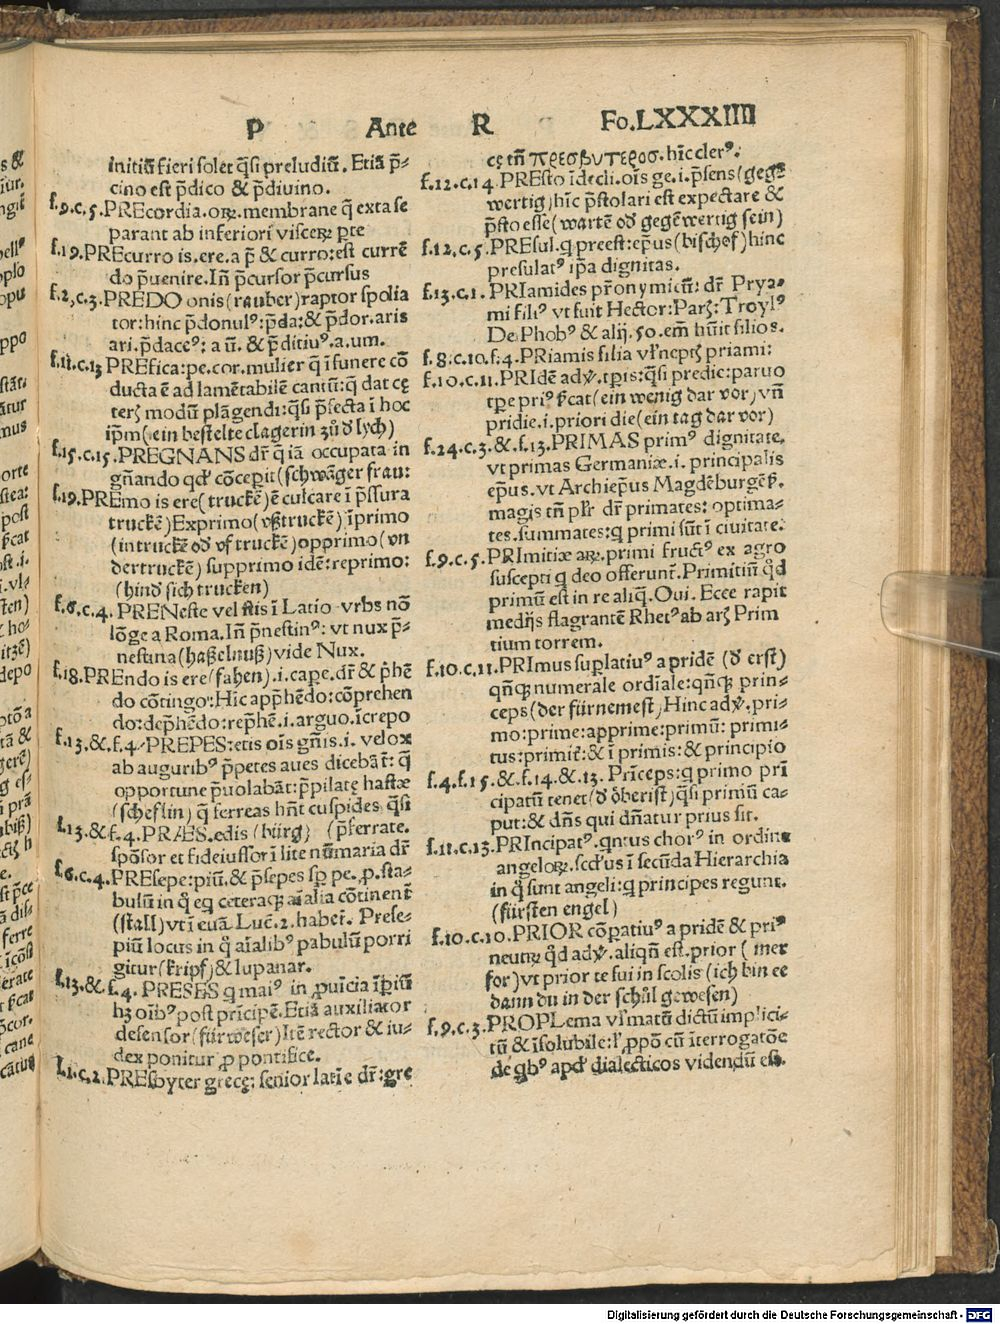 P Ante R Fo.LXXXIIII
initiū fieri solet q̄si preludiū. Etiā p̄-
cino est p̄dico & p̄diuino.
f.9.c.5.PREcordia.oꝝ.membrane q̄ exta se
parant ab inferiori visceꝝ p̱te
f.19.PREcurro is.ere.a p̄ & curro:est currē
do p̄uenire.Iñ p̄cursor p̄cursus
f.2,c.3.PREDO onis(rauber)raptor spolia
tor:hinc p̄donulꝰ:p̄da:& p̄dor.aris
ari.p̄dace⁹: a ū. & p̄ditiuꝰ.a.um.
f.11.c.13 PREfica:pe.cor.mulier q̄ ī funere cō
ducta ē ad lamētabilē cantū:q̄ dat cę
terꝭ modū plāgendi:q̄si p̄fecta ī hoc
ip̄m(ein bestelte clagerin zů d lych)
f.15.c.15.PREGNANS dr̄ q̄ iā occupata in
gñando qđ cōcepit(schwāger frau:
f.19.PREmo is ere(truckē)ē culcare ī p̄ssura
truckē)Exprimo(vßtruckē)īprimo
(intruckē od vf truckē)opprimo(vn
dertruckē) supprimo idē:reprimo:
(hind sich trucken)
f.6.c.4. PRENeste vel stis ī Latio vrbs nō
lōge a Roma.Iñ p̄nestinꝰ: vt nux p̄-
nestina(haßelnuß)vide Nux.
f.18.PREndo is ere(fahen).i.cape.dr̄ & p̄hē
do cōtingo:Hic app̄hēdo:cōprehen
do:dep̄hēdo:rep̄hē.i.arguo.īcrepo
f.13.&.f.4.PREPES:etis oīs gñis.i. velox
ab auguribꝰ p̄petes aues dicebāt: q̄
opportune p̄uolabāt:p̄pilatę hastæ
(scheflin) q̄ ferreas hñt cuspides q̄si
f.13.&f.4.PRÆS.edis (bürg) (p̄ferrate.
spōsor et fideiussor ī lite nūmaria dr̄
f.6.c.4.PREsepe:piū.& p̄sepes sp̱ pe.ꝓ.sta-
bulū in q̊ eq̱ ceteraqꝫ aīalia cōtinent̄
(stall)vt ī euā.Lue.2.habet̄. Prese-
piū locus in q̊ aīalibꝰ pabulū porri
gitur(kripf)& lupanar.
f.13.&.f.4. PRESES q̱ maiꝰ in ꝓuīcia īp̱iū
hꝫ oībꝰ post prīcipē.Etiā auxiliator
defensor(fürweser)Itē rector & iu-
dex ponitur ꝓ pontifice.
f.1.c.2.PREsbyter grecę: senior latīe dr̄:gre
cę tñ πρεσβυτεροσ.hīc clerꝰ.
f.12.c.14.PREsto īdecli.oīs ge.i.p̄sens(gegē
wertig)hīc p̄stolari est expectare &
p̄sto esse(wartē od gegēwertig sein)
f.12,c.5.PREsul.q̱ preest:ep̄us(bischef)hinc
presulatꝰ ip̄a dignitas.
f.13.c.1. PRIamides pr̄onymicū: dr̄ Prya-
mi filiꝰ vt fuit Hector:Parꝭ:Troylꝰ
De̱Phobꝰ & alij.50.em̄ hūit filios.
f.8.c.10.f.4.PRiamis filia vl̄ neptꝭ priami:
f.10.c.11.PRIdē adꝟ.tp̱is:q̄si predie:paruo
tp̱e priꝰ p̄cat(ein wenig dar vor,vñ
pridie.i.priori die(ein tag dar vor)
f.24.c.3.&.f.13.PRIMAS primꝰ dignitate.
vt primas Germaniæ.i. principalis
ep̄us.vt Archiep̄us Magdēburgēẜ.
magis tñ pl̄r dr̄ primates: optima-
tes.summates:q̱ primi sūt ī ciuitate:
f.9.c.5.PRImitiæ aꝝ.primi fructꝰ ex agro
suscepti q̱ deo offerunt̄.Primitiū q̊d
primū est in re aliq̱.Oui. Ecce rapit
medijs flagrantē Rhetꝰab arꝭ Prim
tium torrem.
f.10.c.11.PRImus sup̱latiuꝰ a pridē (d erst)
qñqꝫ numerale ordīale:qñqꝫ prin-
ceps(der fürnemest)Hinc adꝟ.pri-
mo:prime:apprime:primū: primi-
tus:primit̄:& ī primis:& principio
f.4.f.15.&.f.14.&.13. Prīceps:q̱ primo prī
cipatū tenet(d öberist)q̄si primū ca-
put:& dñs qui dñatur prius sit.
f.11.c.13.PRIncipatꝰ.q̱ntus chorꝰ in ordine
angeloꝝ.sc̄dus ī secūda Hierarchia
in q̊ sunt angeli:q̱ principes regunt.
(fürsten engel)
f.10.c.10.PRIOR cōp̱atiuꝰ a pridē & priꝰ
neutꝝ q̊d adꝟ.aliqñ est.prior ( mer
for)vt prior te fui in scolis(ich bin ee
dann du in der schůl gewesen)
f.9.c.3.PROPLema vl̄ matū dictū implici-
tū & īsolubile:l̄ ꝓpō cū īterrogatōe
de q̱bꝰ apđ dialecticos videndū est.
Digitalisierung gefördert durch die Deutsche Forschungsgemeinschaft - DFG